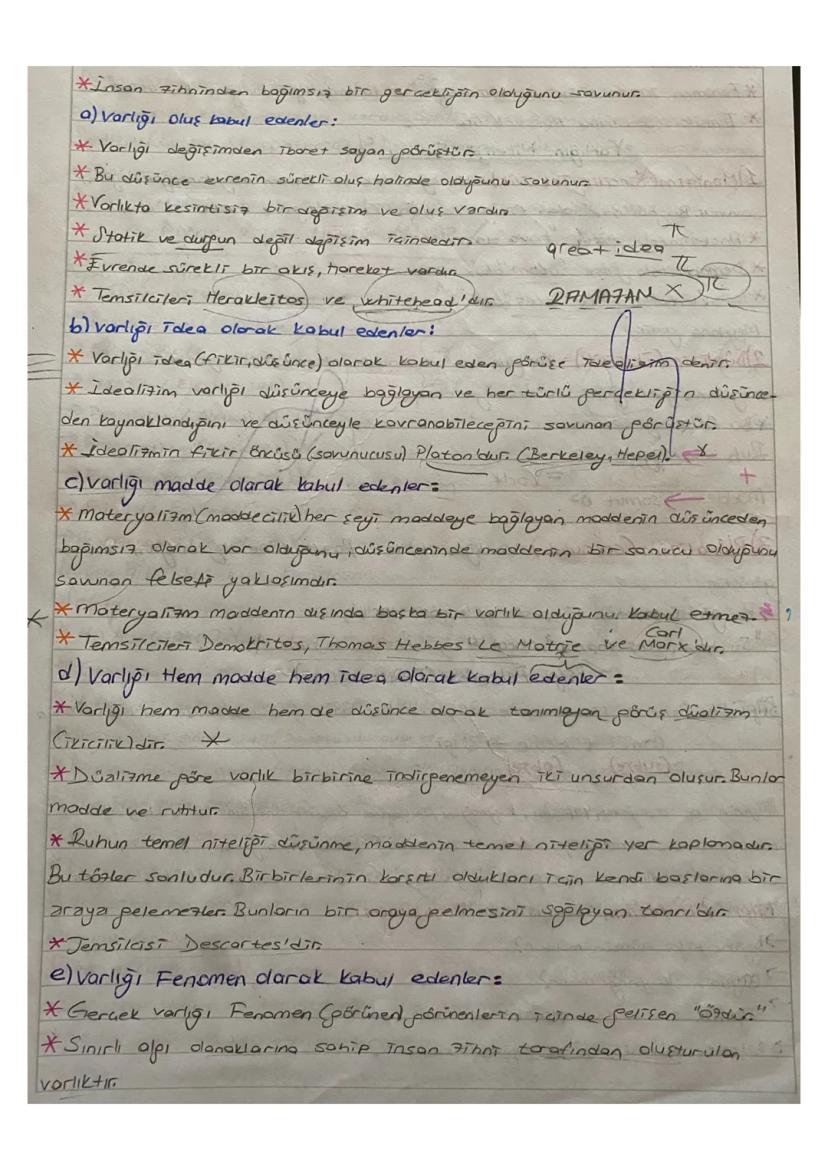 *İnsan zihninden bağımsız bir gerçekliğin olduğunu savunur.
a) Varlığı oluş kabul edenler:
* Varlığı değişimden ibaret sayan görüştür.
* Bu düşünce evrenin sürekli oluş halinde olduğunu savunur.
* Varlıkta kesintisiz bir değişim ve oluş vardır.
* Statik ve durgun değil değişim içindedir.
great idea π
π
* Evrende sürekli bir akış, hareket vardır.
* Temsilcileri Herakleitos ve whitehead'dır.
RAMAZAN X π
b) varlığı idea olarak kabul edenler:
* Varlığı idea (fikir, düşünce) olarak kabul eden görüşe idealizim denir.
* İdealizim varlığı düşünceye bağlayan ve her türlü gerçekliğin düşünce-
den kaynaklandığını ve düşünceyle kavranabileceğini savunan görüştür.
* İdealizmin fikir öncüsü (savunucusu) Platon'dur. (Berkeley, Hegel).
c) varlığı madde olarak kabul edenler:
* materyalizm (maddecilik) her şeyi maddeye bağlayan maddenin düşünceden
bağımsız olarak var olduğunu, düşünceninde maddenin bir sonucu olduğunu
savunan felsefi yaklaşımdır.
* materyalizm maddenin dışında başka bir varlık olduğunu kabul etmez.
* Temsilcileri Demokritos, Thomas Hebbes Le Matrie ve Carl Marx'dır.
d) Varlığı Hem madde hem idea olarak kabul edenler:
* Varlığı hem madde hem de düşünce olarak tanımlayan görüş düalizm
(ikicilik)dir. *
* Düalizme göre varlık birbirine indirgenemeyen iki unsurdan oluşur. Bunlar
madde ve ruhtur.
* Ruhun temel niteliği düşünme, maddenin temel niteliği yer kaplamadır.
Bu tözler sonludur. Birbirlerinin karşıtı oldukları için kendi başlarına bir
araya gelemezler. Bunların bir araya gelmesini sağlayan tanrı'dır.
* Temsilcisi Descartes'dir.
e) varlığı Fenomen olarak kabul edenler:
* Gerçek varlığı Fenomen (görünen), görünenlerin içinde gelişen "özdür"
* Sınırlı algı olanaklarına sahip insan zihni tarafından oluşturulan
varlıktır.